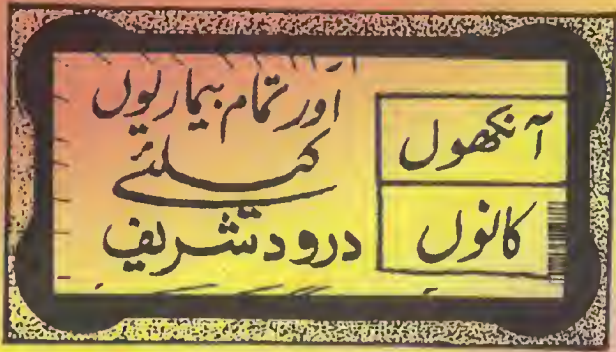 آنکھوں
کانوں
اور تمام بیماریوں
کیلئے
درود شریف